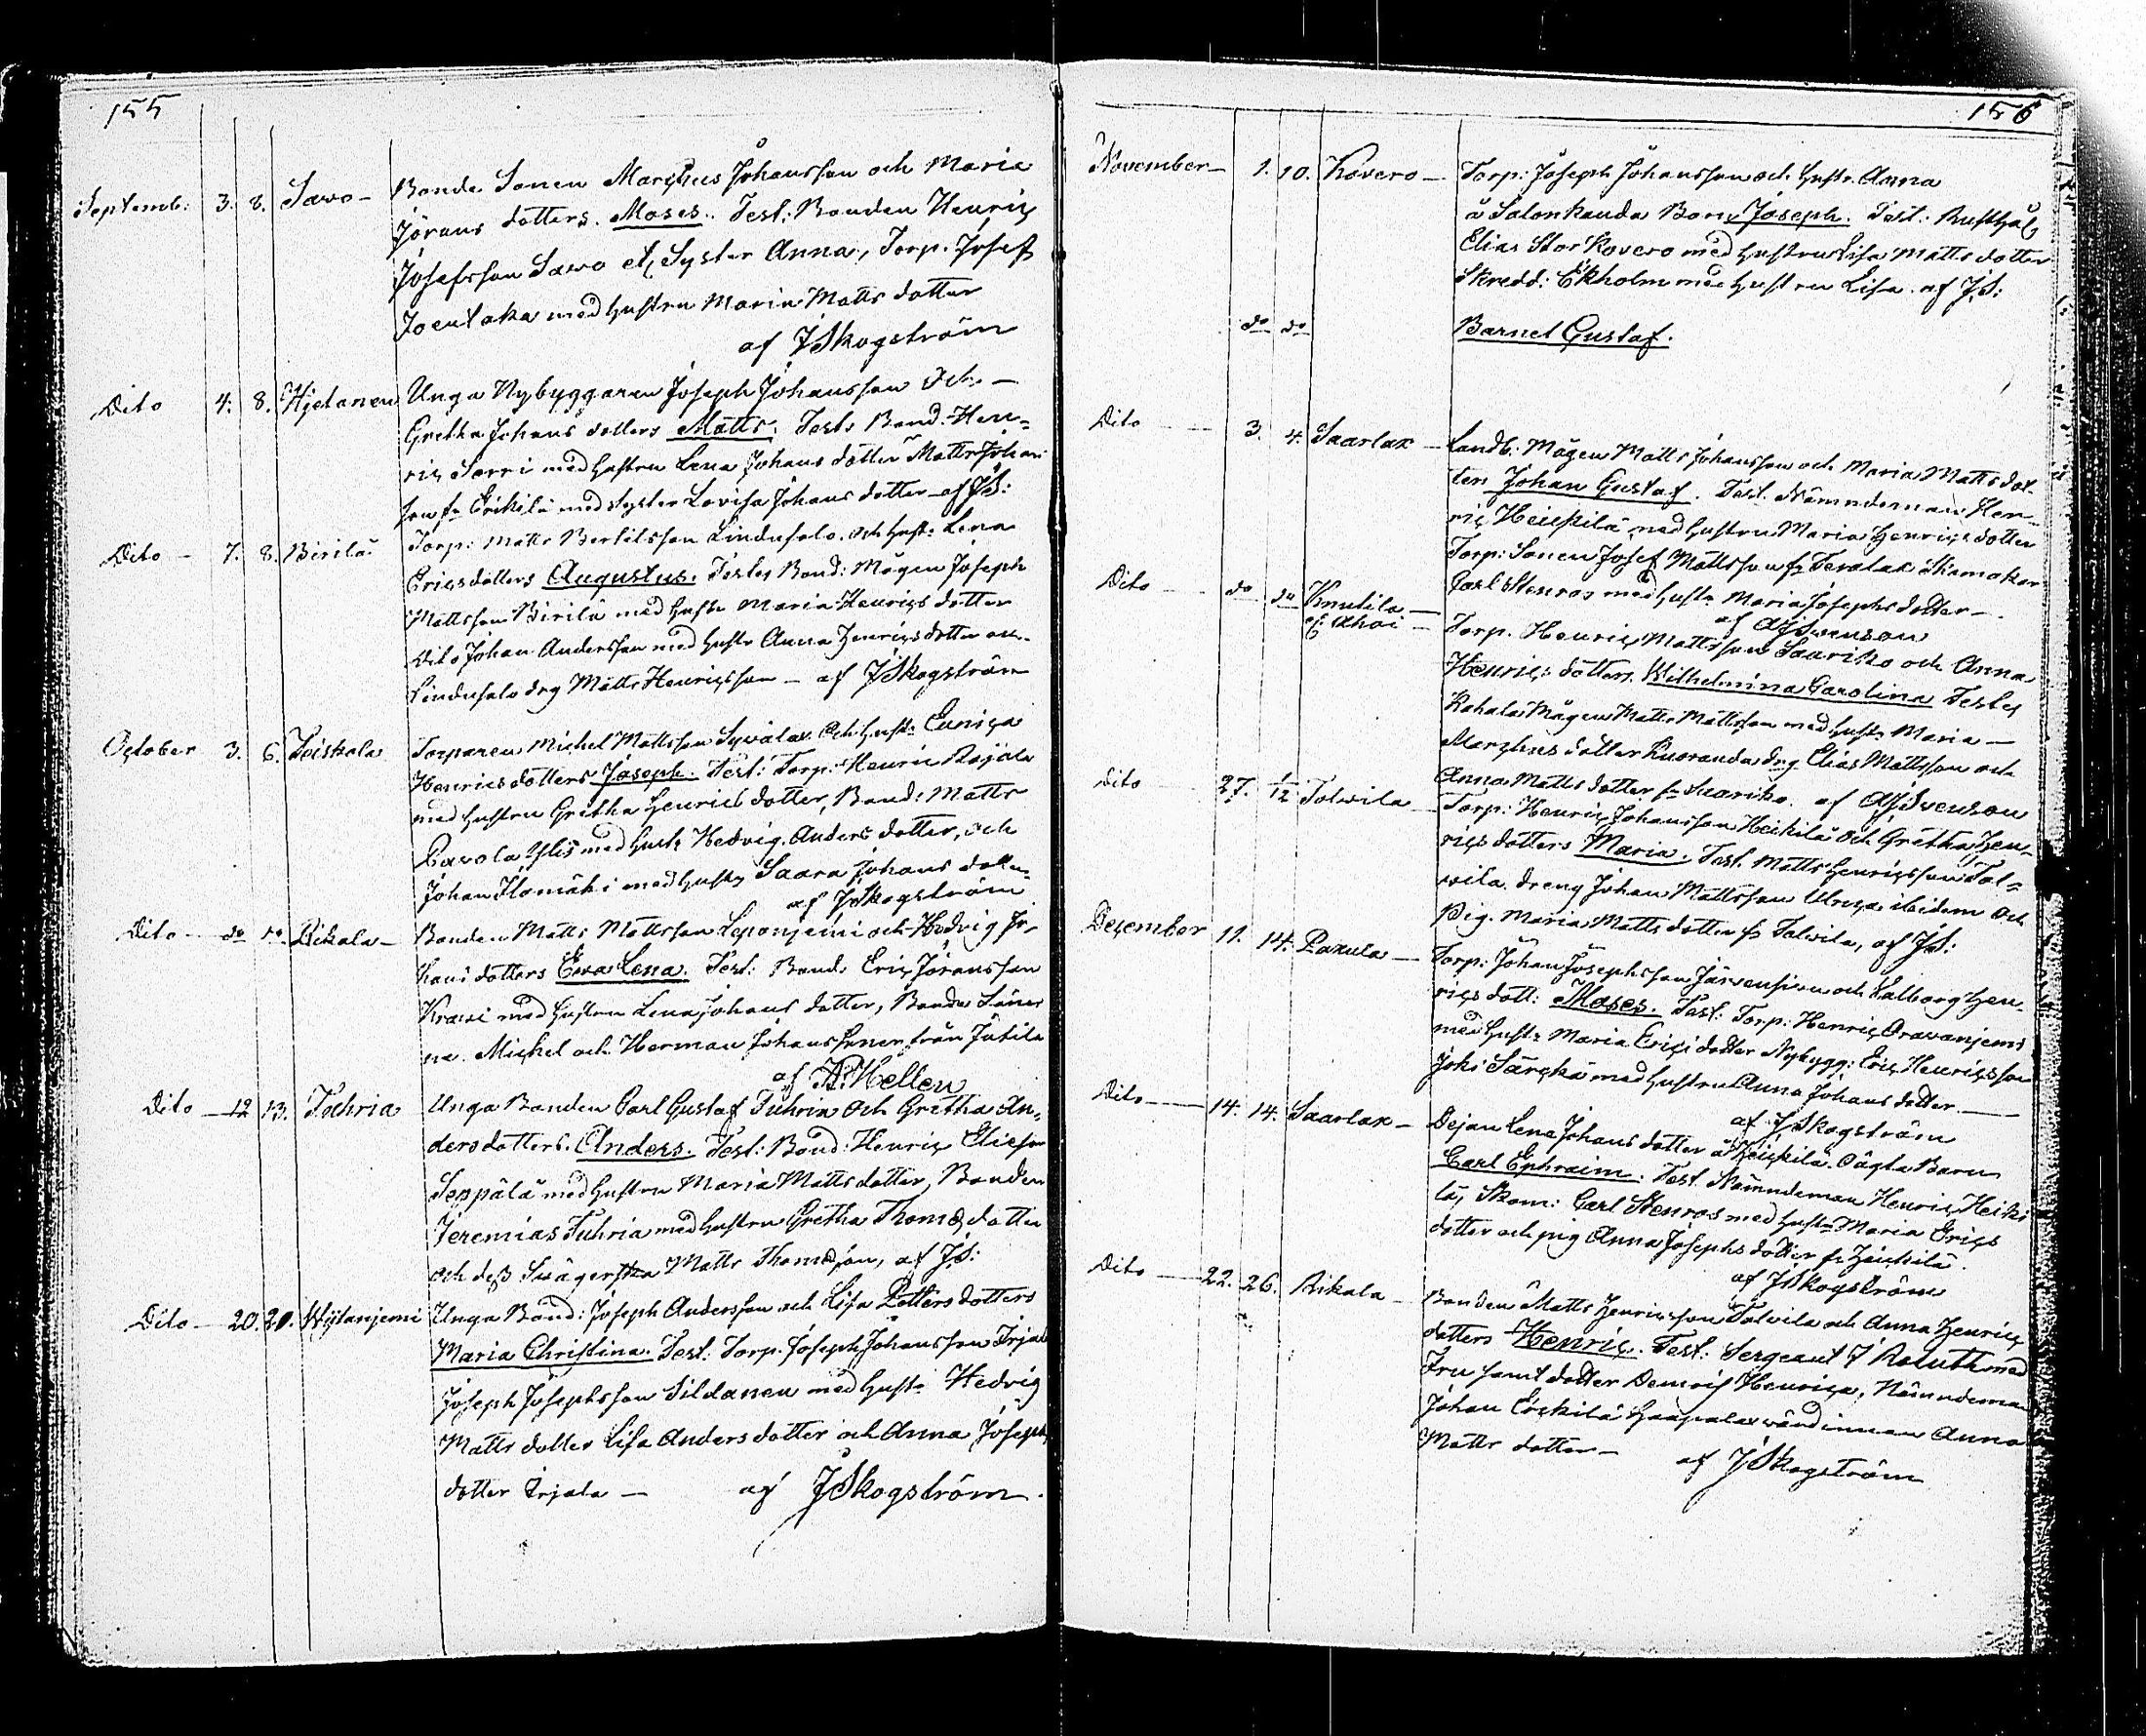 155
Septemb: 3. 8. Sawo - Bonde Sonen Marchus Johansson och Maria
Jörans dotters. Moses. Test: Bonden Henric
Josefsson Sawo et Syster Anna, Torp. Josef
Joentaka med hustru Maria Matts dotter
af JSkogström
Dito 4. 8. Hjetanen Unga Nybyggaren Joseph Johansson och -
Gretha Johans dotters Matts. Test: Bond: Hen=
ric Sorri med hustru Lena Johans dotter Matts Johan
son fr Erikilä med syster Lovisa Johans dotter af JS:
Dito - 7. 8. Birilä Torp: Matts Bertilsson Lindusalo och hust: Lena
Ericsdotters Augustus. Testes Bond: Mågen Joseph
Mattsson Birilä med hustr Maria Henrics dotter
Dito Johan Andersson med hustr Anna Henricsdotter
Lindusalo drg Matts Henricsson - af JSkogström
October 3. 6. Teiskola Torparen Michel Mattsson Sywälax och hust: Eunica
Henricsdotters Joseph. Test: Torp: Henric Rajala
med hustru Gretha Henrics dotter, Bond: Matts
Pavola Ylis med hust: Hedvig Anders dotter, och
Johan Ilomäki med hustr Saara Johans dotter
af JSkogström
Dito - do do Dikala - Bonden Matts Mattsson Leponjemi och Hedvig Jo-
hans dotters Ewa Lena. Test: Bond: Eric Jöransson
Krawi med hustru Lena Johans dotter, Bonde Söner
na Michel och Herman Johanssoner från Jutila
af A: Hellen
Dito - 12 13. Tuhria Unga Bonden Carl Gustaf Tuhria och Gretha An=
dersdotters. Anders. Test: Bond: Henric Eliesson
Seppälä med hustru Maria Matts dotter, Bonden
Jeremias Tuhria med hustru Gretha Thomæ dotter
och dess Swägerska Matts Thomæson, af JS:
Dito - 20. 20. Wijtanjemi Unga Bond: Joseph Andersson och Lisa Petters dotters
Maria Christina. Test: Torp. Joseph Johansson Irjala
Joseph Josephsson Sildanen med hust: Hedvig
Matts dotter Lisa Anders dotter och Anna Joseph
dotter Irjala - af JSkogström.
156
November - 1. 10. Kovero - Torp: Joseph Johansson och hustr. Anna
å Salonkanda Barn Joseph. Test: Rusthål
Elias Stor Kovero med hustru Lisa Matts dotter
Skredd: Ekholm med hustru Lisa. af JS:
do do Barnet Gustaf.
Dito - 3. 4. Saarlax - Landb: Mågen Matts Johansson och Maria Matts dot-
ters Johan Gustaf. Test. Nämndeman Hen-
ric Heickilä med hustru Maria Henrics dotter
Torp: Sonen Josef Mattsson fr Terolax Skomaker
Carl Stenros med hustr Maria Josephs dotter -
af AJSwenson
Dito - do do Knutila - Torp. Henric Mattsson Sauriko och Anna
Ahoi - Henrics dotters Wilhelmina Carolina Testes
Kahala Mågen Matts Mattsson med hustr Maria -
Marchus dotter Kuoranda drg Elias Mattsson och
Anna Matts dotter fr Suariko. af AJSwenson
Dito 27. 1/12 Tolwila - Torp: Henric Johansson Heikilä och Gretha Hen-
rics dotters Maria. Test. Matts Henricsson Tol=
wila. dreng Johan Mattsson ibidem och
Pig. Maria Matts dotter fr Tolwila, af JS:
December 11. 14. Paxula - Torp: Johan Josephsson Järvensivu och Walborg Hen-
rics dott: Moses. Test: Torp: Henric Oravanjemi
med hustr Maria Erics dotter Nybygg: Eric Henricsson
Joki Särckä med hustru Anna Johans dotter -
af JSkogström
Dito - 14. 14. Saarlax - Dejan Lena Johans dotter å Heickilä. Oägta Barn
Carl Ephraim. Test. Nämndeman Henric Heiki
lä, Skom: Carl Stenros med hustr Maria Erics
dotter och pig Anna Josephs dotter fr Heickilä.
af JSkogström
Dito - 22. 26. Rikala - Bonden Matts Henricsson Tolvila och Anna Henrics
dotters Henric. Test: Sergeant J Roluth med
Fru samt dotter Demois Henrica, Nämndeman
Johan Erckilä Haapalax wärdinnan Anna
Matts dotter - af JSkogström